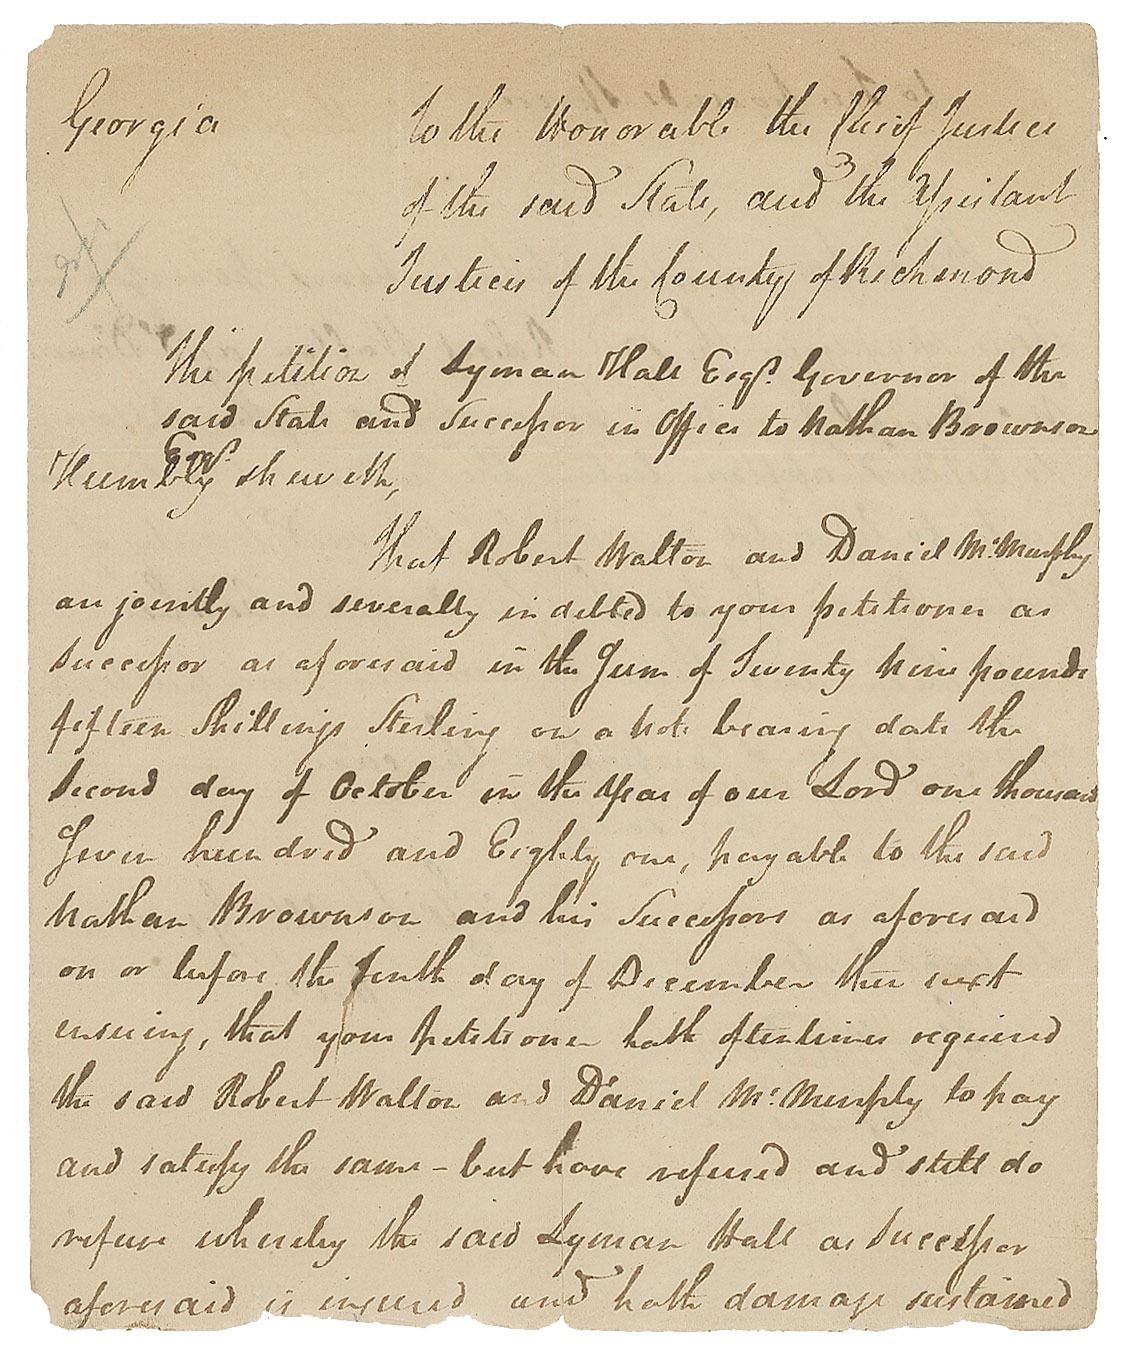 Georgia To the Honorable the Chief Justice
of the said State, and the Assistant
Justices of the County of Richmond
The petition of Lyman Hall Esqr. Governor of the
said State and Successor in Office to Nathan Brownson
Esqr.
Humbly sheweth,
That Robert Walton and Daniel Mc.Murphy
are jointly and severally indebted to your petitioner as
Successor as aforesaid in the Sum of Twenty Nine pounds
fifteen Shillings Sterling on a Note bearing date the
Second day of October in the Year of our Lord one thousand
Seven hundred and Eighty one, payable to the said
Nathan Brownson and his Successors as aforesaid
on or before the tenth day of December then next
ensuing, that your Petitioner hath oftentimes required
the said Robert Walton and Daniel Mc. Murphy to pay
and satisfy the same - but have refused and still do
refuse whereby the said Lyman Hall as Successor
aforesaid is injured and hath damage sustained